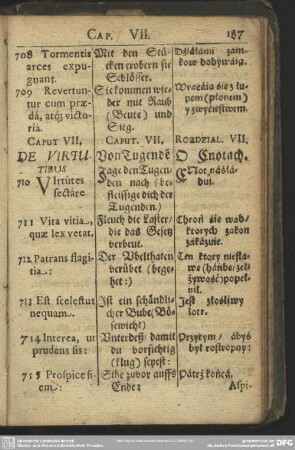 CAP. VII. 187
708 Tormentis
arces expu-
gnant.
709 Revertun-
tur cum præ-
dâ, atq; victo-
riâ.
CAPUT VII.
DE VIRTU-
TIBUS
710 VIrtùtes
sectare
711 Vita vitia,
quæ lex vetat.
712 Patrans flagi-
tia:
713 Est scelestus
nequam.
714 Interea, ut
prudens sis:
715 Prospice fi-
em:
Mit den Stü-
cken erobern sie
Schlösser.
Sie kommen wie-
der mit Raub
(Beute) und
Sieg.
CAPUT. VII.
Von Tugendē
Jage den Tugen-
den nach (be-
fleissige dich der
Tugenden.)
Fleuch die Laster/
die das Gesetz
verbeut.
Der Ubelthaten
verübet (bege-
het:)
Ist ein schändli-
cher Bube (Bö-
sewicht)
Unterdeß damit
du vorsichtig
(klug) seyest:
Sihe zuvor auffs
Ende:
Działami zam-
kow dobywáią.
Wracáią się z łu-
pem (plonem)
y zwyćięstwem.
ROZDZIAL. VII.
O Cnotach.
Cnot náślá-
duj.
Chroń się wad/
ktorych zakon
zákázuie.
Ten ktory niesła-
wę (háńbę/zel-
żywość) popeł-
nił.
Jest złośliwy
łotr.
Przytym / ábyś
był rostropny:
Pátrz końcá.
Aspi-